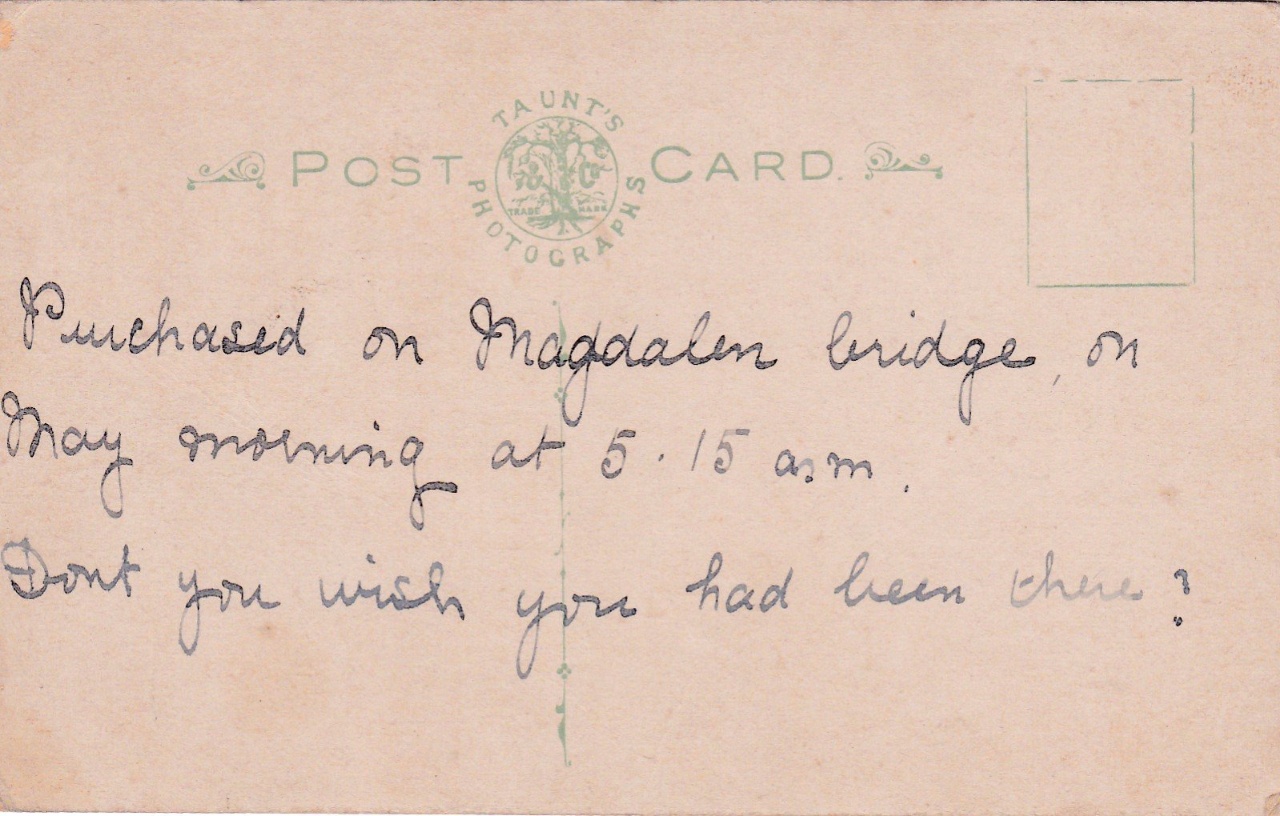 TAUNT'S
POST CARD.
& Co
TRADE MARK
PHOTOGRAPHS
Purchased on Magdalen bridge, on
May morning at 5.15 a.m.
Dont you wish you had been there?